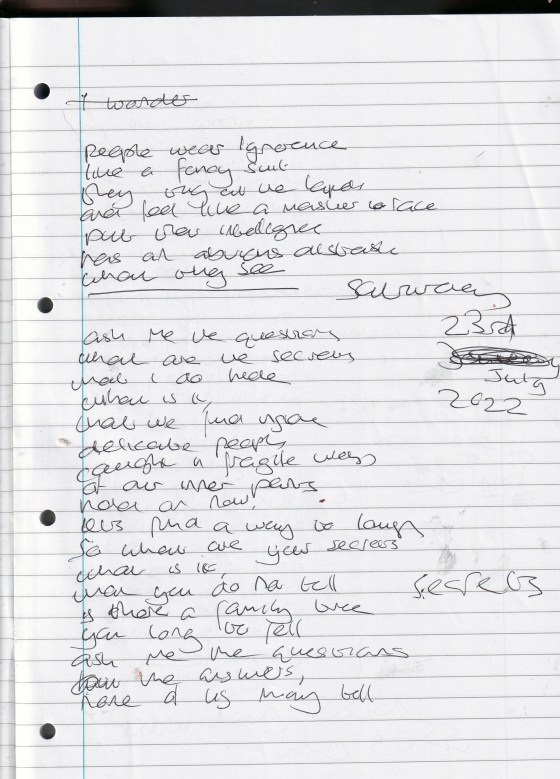 I wonder
people wear ignorance
like a fancy suit
they
and feel like a master race
but their
has an obvious distaste
what they see
Saturday
23rd
July
2022
ask me the questions
what are the secrets
that I do hide
what is it,
that we find
delicate people
caught in fragile ways
of our inner parts
hold on now,
lets find a way to laugh
So what are your secrets
what is it,
that you do not tell
is there a family tree
you long to fell
Secrets
ask me the questions
the answers,
none of us may tell